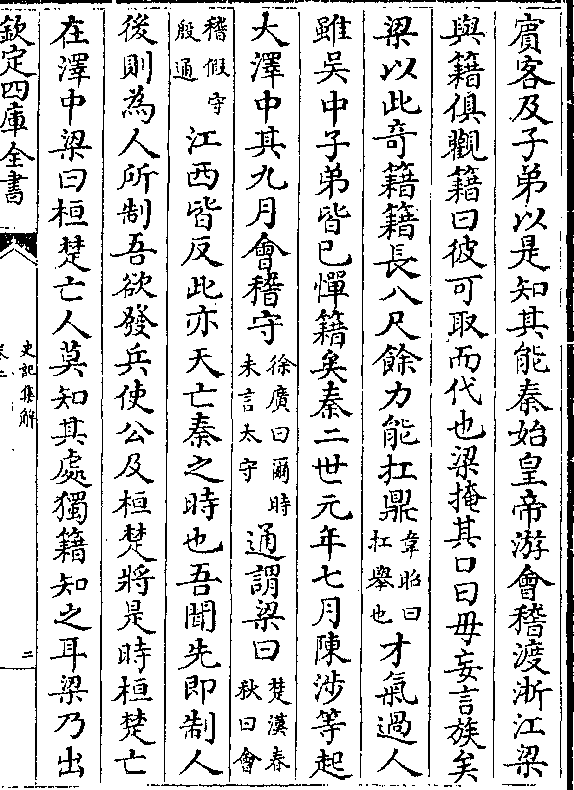 賔客及子弟以是知其能秦始皇帝游會稽渡浙江梁
與籍俱觀籍曰彼可取而代也梁掩其口曰毋妄言族矣
梁以此奇籍籍長八尺餘力能扛鼎韋昭曰扛舉也才氣過人
雖吴中子弟皆已憚籍矣秦二世元年七月陳涉等起
大澤中其九月會稽守徐廣曰爾時未言太守通謂梁曰楚漢春秋曰會
稽假守殷通江西皆反此亦天亡秦之時也吾聞先即制人
後則為人所制吾欲發兵使公及桓楚將是時桓楚亡
在澤中梁曰桓楚亡人莫知其處獨籍知之耳梁乃出
欽定四庫全書
史記集解
二